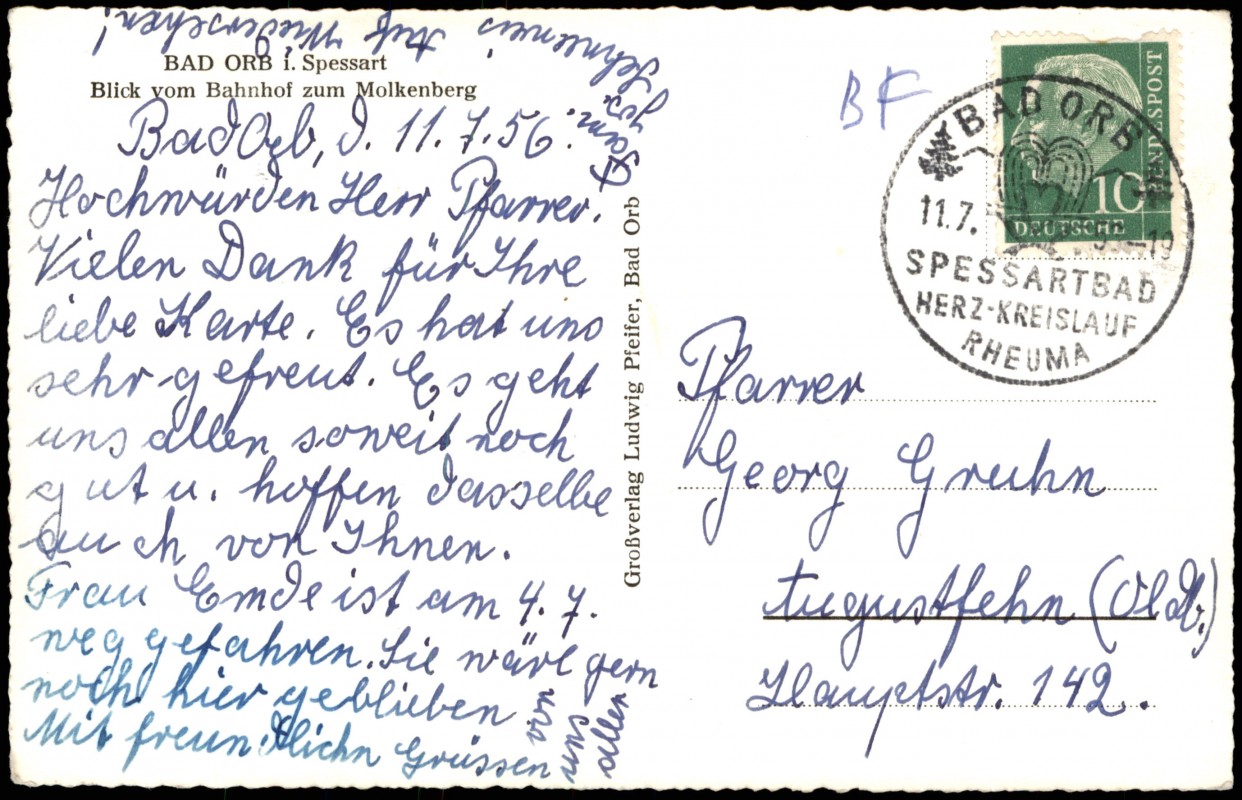 BAD ORB i. Spessart
Blick vom Bahnhof zum Molkenberg
Bad Orb, d. 11.7.56.
Hochwürden Herr Pfarrer.
Vielen Dank für Ihre
liebe Karte. Es hat uns
sehr gefreut. Es geht
uns allen soweit noch
gut u. hoffen dasselbe
auch von Ihnen.
Frau Emde ist am 4.7.
weg gefahren. Sie wäre gern
noch hier geblieben
Mit freundlichn Grüssen
von
uns
allen
Fam.
Auf Wiedersehen!
Großverlag Ludwig Pfeiffer, Bad Orb
BF
10
DEUTSCHE
BUNDESPOST
BAD ORB
11.7. –19
SPESSARTBAD
HERZ-KREISLAUF
RHEUMA
Pfarrer
Georg Gruhn
Augustfehn (Oldb.)
Hauptstr. 142.